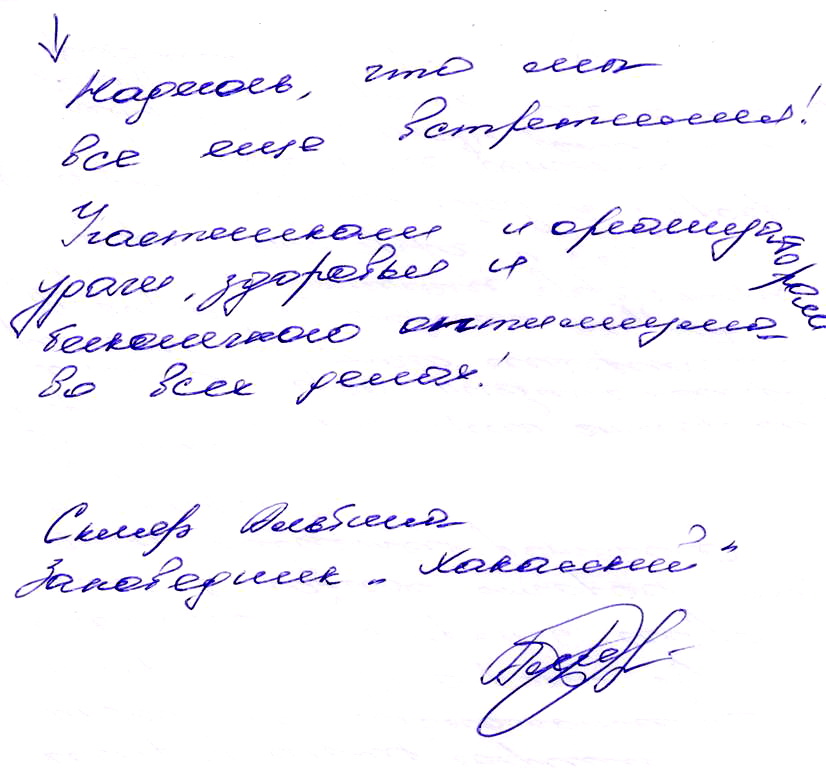 Надеюсь, что мы
все еще встретимся!
Участникам и организаторам
удачи, здоровья и
бесконечного оптимизма
во всех делах!
Альбина
Заповедник „Хакасский"